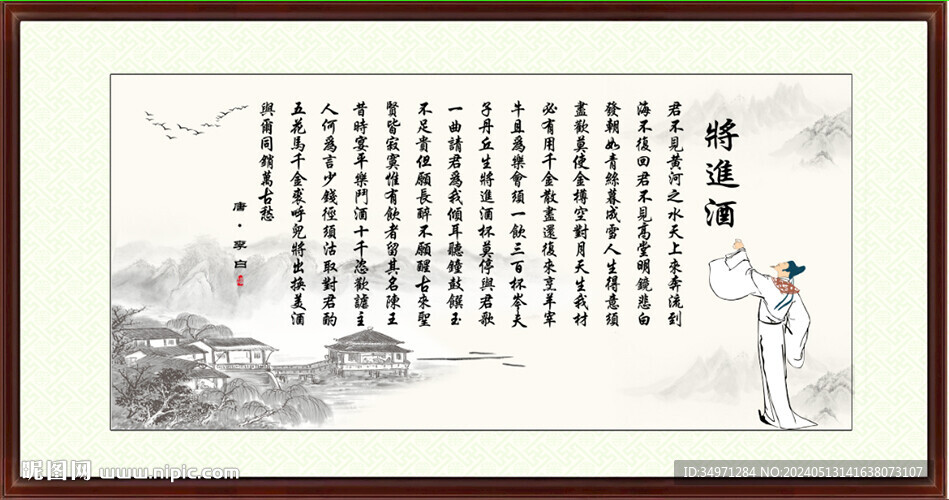 將進酒
君不見黄河之水天上來奔流到
海不復回君不見高堂明鏡悲白
發朝如青絲暮成雪人生得意須
盡歡莫使金樽空對月天生我材
必有用千金散盡還復來烹羊宰
牛且爲樂會須一飲三百杯岑夫
子丹丘生將進酒杯莫停與君歌
一曲請君爲我傾耳聽鐘鼓饌玉
不足貴但願長醉不願醒古來聖
賢皆寂寞惟有飲者留其名陳王
昔時宴平樂鬥酒十千恣歡謔主
人何爲言少錢徑須沽取對君酌
五花馬千金裘呼兒將出換美酒
與爾同銷萬古愁
唐·李白
昵图网 www.nipic.com
ID:34971284 NO:20240513141638073107